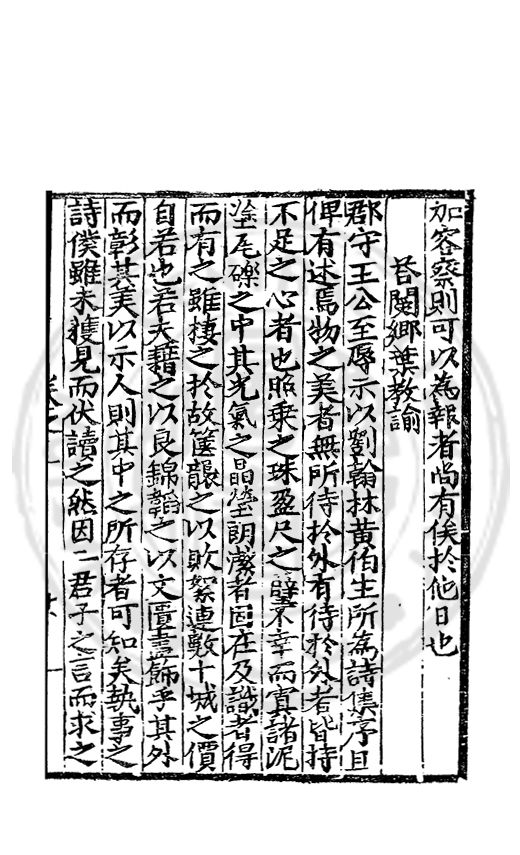 加容察則可以為報者尚有俟於他日也
荅閿鄉葉教諭
郡守王公至辱示以劉翰林黃伯生所為詩集序且
俾有述焉物之美者無所待於外有待於外者皆持
不足之心者也照乗之珠盈尺之璧不幸而寘諸泥
塗瓦礫之中其光氣之晶瑩朗潔者固在及識者得
而有之雖棲之於故篋襲之以敗絮連數十城之價
自若也若夫藉之以良錦韜之以文匱盡飾乎其外
而彰其美以示人則其中之所存者可知矣執事之
詩僕雖未獲見而伏讀之然因二君子之言而求之